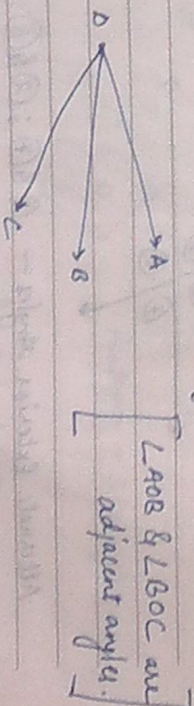 A
O
B
C
[∠AOB & ∠BOC are
adjacent angles.]